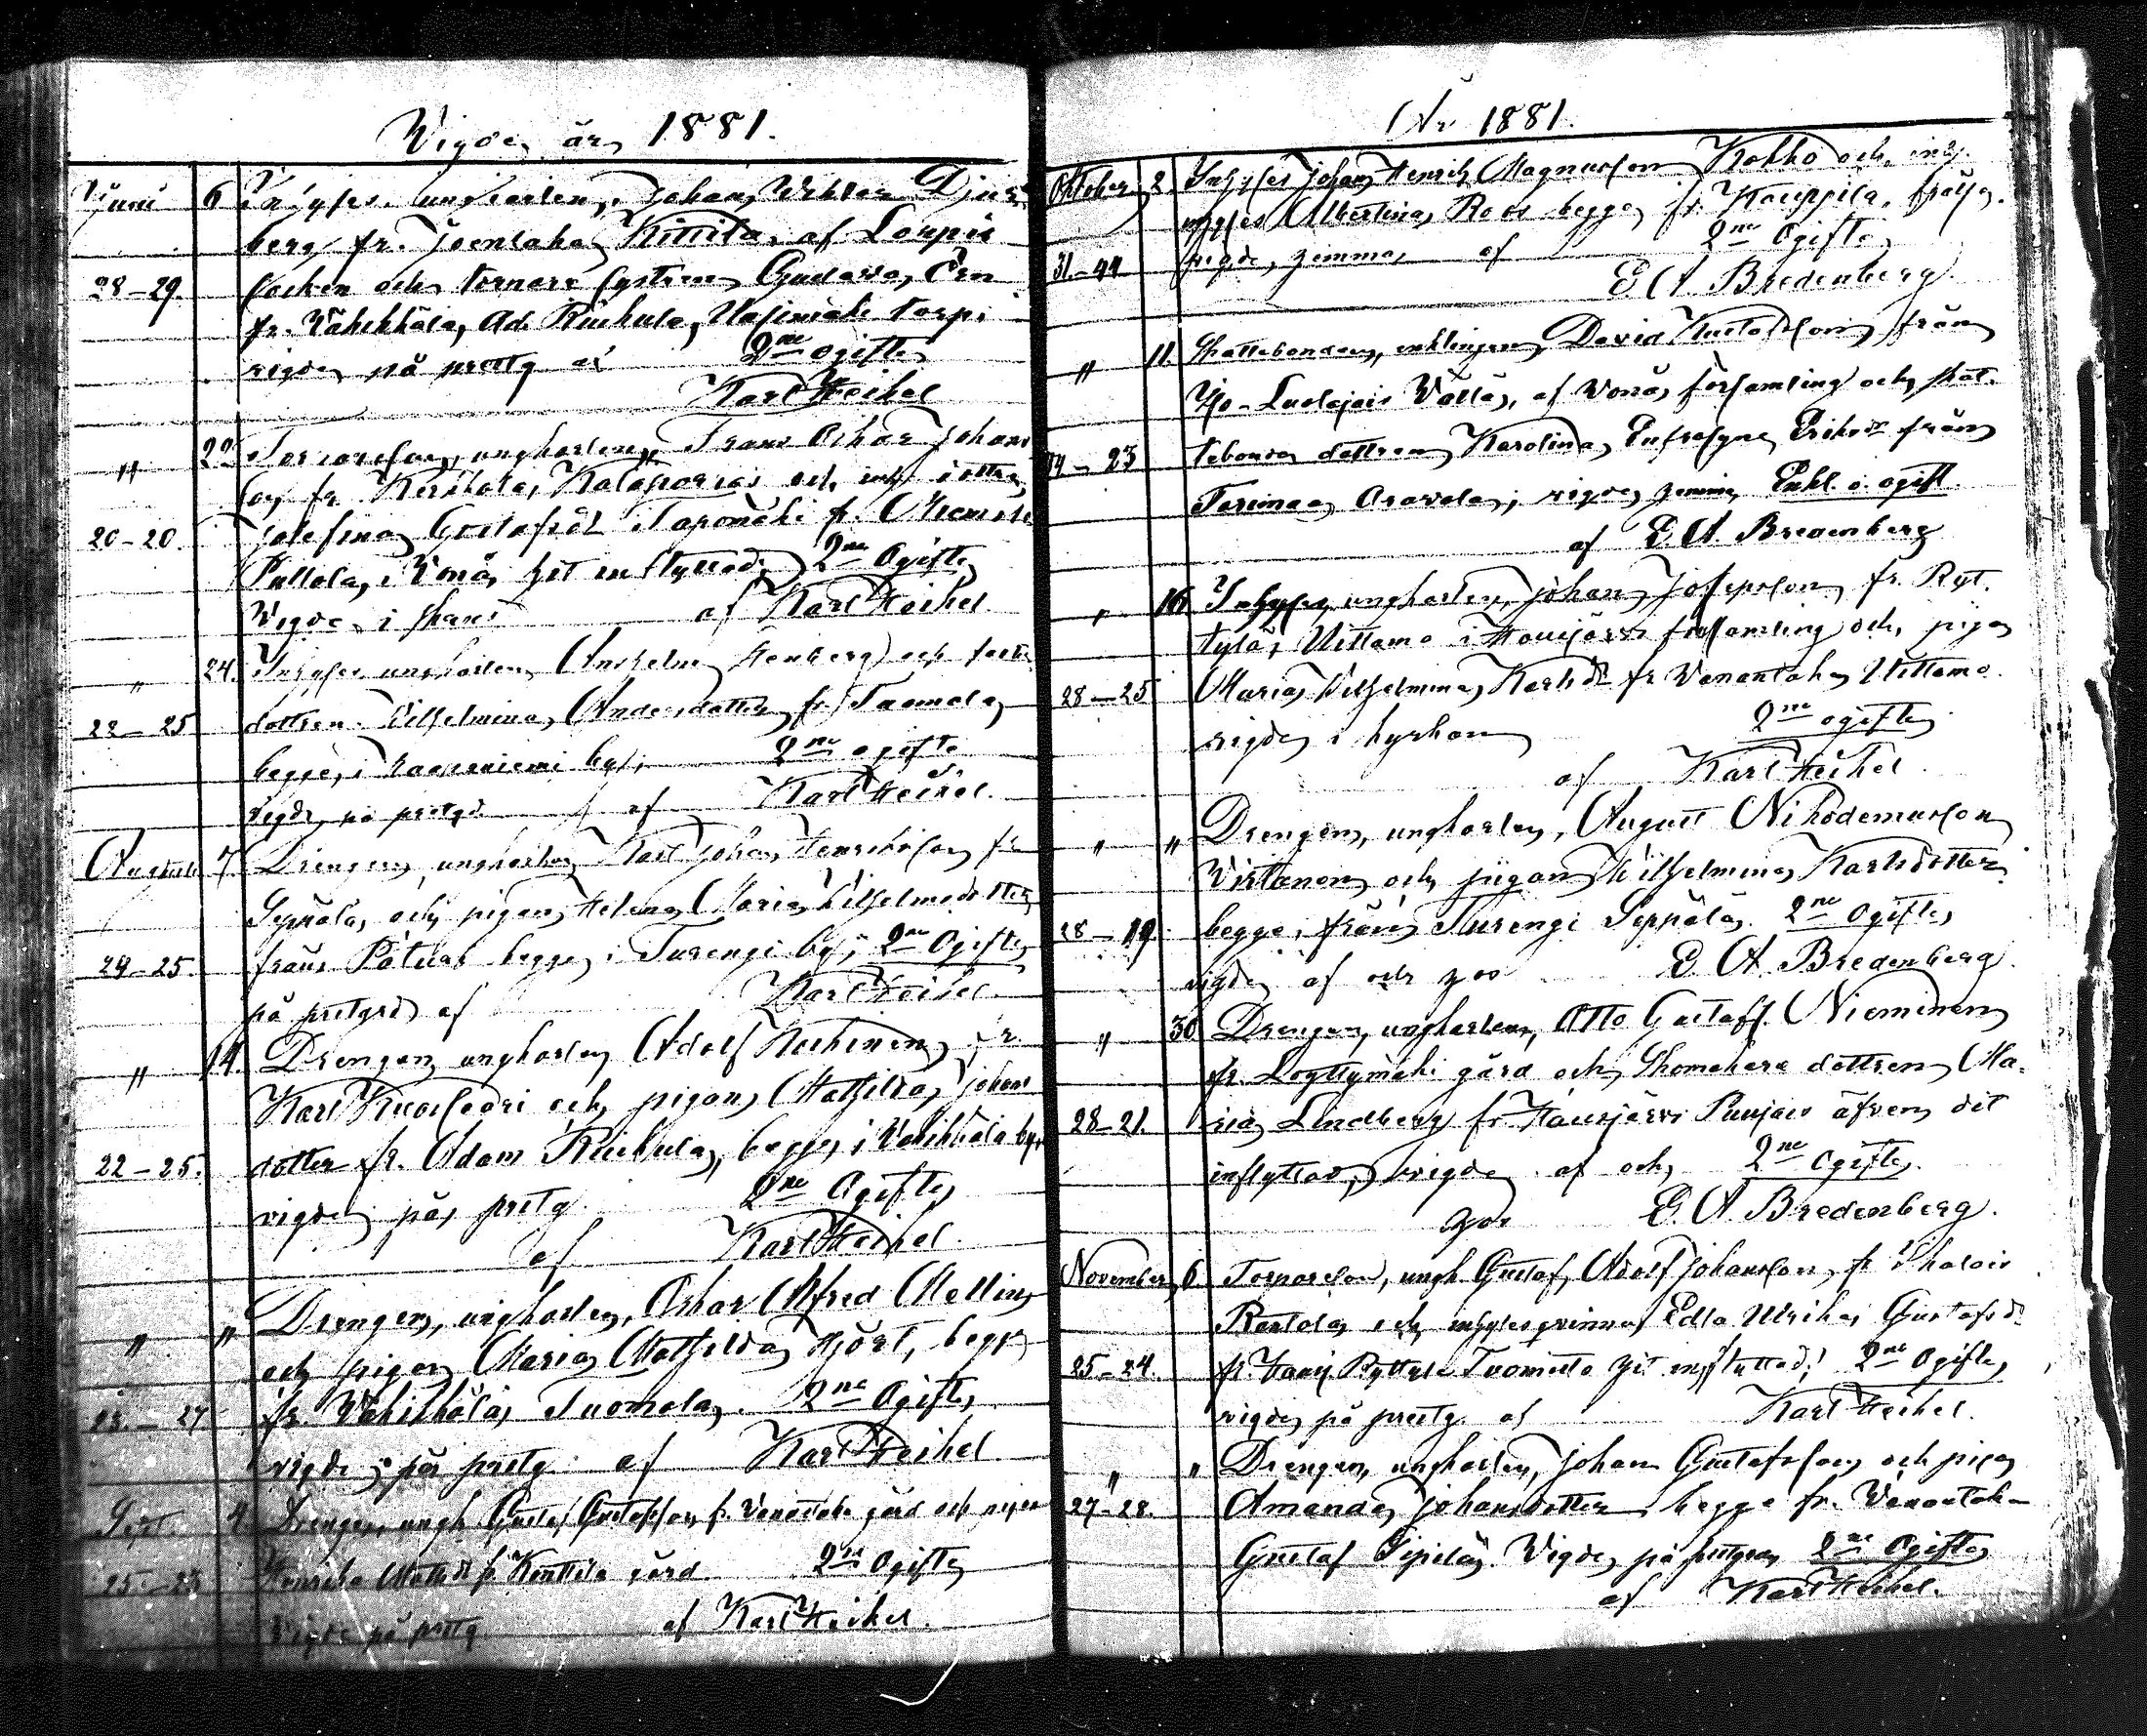 Vigde år 1881.
Juni 6 Inhyses ungkarlen, Johan Viktor Djur-
berg fr. Joentaka Kittilä af Loppis
28-29. socken och tornare systren Gustava
fr. Vähikkälä, Ad. Kiukula, torp.
vigde på prestg af 2ne ogifte
Karl Heikel
" ungkarlen, Frans Oskar Johans-
son fr. Kerkkola, och inhs dottren
20-20. Josefina Gustafsdr fr.
Pullola, i Vonå, hit inflyttad; 2ne Ogifte
Vigde i af Karl Heikel
" 24. Inhyses ungkarlen Anshelm Stenberg och
22-25 dottren Vilhelmina Andersdotter fr. Tuomola
begge, i by; 2ne ogifte
vigde på prstgd af Karl Heikel.
Augusti 7. Drengen, ungkarlen Karl Johan Henriksson fr
Seppälä, och pigan, Helena Maria Vilhelmsdotter
29-25. från Pätiäs begge i Turengi by; 2ne Ogifte,
på prstgrd af Karl Heikel.
" 14. Drengen ungkarlen Adolf Heikinen, fr.
Karl och pigan, Mathilda, Johans
22-25. dotter fr. Adam Kiukula, begge i Vähikkälä by,
vigde på prstg 2ne Ogifte
af Karl Heikel.
" " Drengen, ungkarlen, Oskar Alfred Mellin
och pigan Maria Mathilda Hjört, begge
-27 fr. Vähikkälä, Tuomola, 2ne Ogifte
vigde på prstg af Karl Heikel
Sept. 4 Drengen, ungk Gustaf Gustafsson fr. Vanantaka gård och pigan
25- Henrika Mattsdr fr. Kinttilä gård 2ne Ogifte
vigde på prstg af Karl Heikel.
År 1881.
Oktober 2. Inhyses Johan Henrik Magnusson Kokko och inhy.
Albertina Roos begge fr. Kauppila,
31-44 vigde, hemma, af 2ne Ogifte
E. A. Bredenberg.
" 11. Skattebonden, enklingen, David Gustafsson från
Yso-Luolajais Välilä, af Vonå, församling och skat-
44-23 tebonde dottren, Karolina, Eufrosyne Eriksdr från
Aravola; vigde hemma Enkl. o. ogift.
af E. A. Bredenberg
" 16. Inhyses, ungkarlen, Johan Josepsson, fr. Ryt-
tylä, Uittamo i Hausjärvi församling och pigan
28-25 Maria, Vilhelmina, Karlsdr fr Vanantaka Uittamo.
vigde i kyrkan 2ne ogifte
af Karl Heikel.
" " Drengen, ungkarlen, August Nikodemusson
Virtanen och pigan Vilhelmina, Karlsdotter
28-19. begge, från Turengi Seppälä. 2ne Ogifte,
vigde af och hos E. A. Bredenberg.
" 30 Drengen, ungkarlen, Otto Gustafs. Nieminen
fr. Löyttymäki gård och Skomakare dottren, Ma-
28-21. ria, Lindberg fr. Hausjärvi Puujais äfven dit
inflyttad; vigde af och 2ne Ogifte,
hos E. A. Bredenberg.
November 6. Torpareson, ungk Gustaf, Adolf Johansson, fr
Rantola, och inhysesqvinna, Edla Ulrika, Gustafsdr
25-24. fr. Hausj. Ryttylä Tuomisto hit inflyttad; 2ne Ogifte,
vigde på prestg. af Karl Heikel.
" " Drengen, ungkarlen, Johan Gustafsson och pigan
27-28. Amanda, Johansdotter begge fr. Vanantaka
Gustaf Pipilä. Vigde på prstgrd 2ne Ogifte
af Karl Heikel.